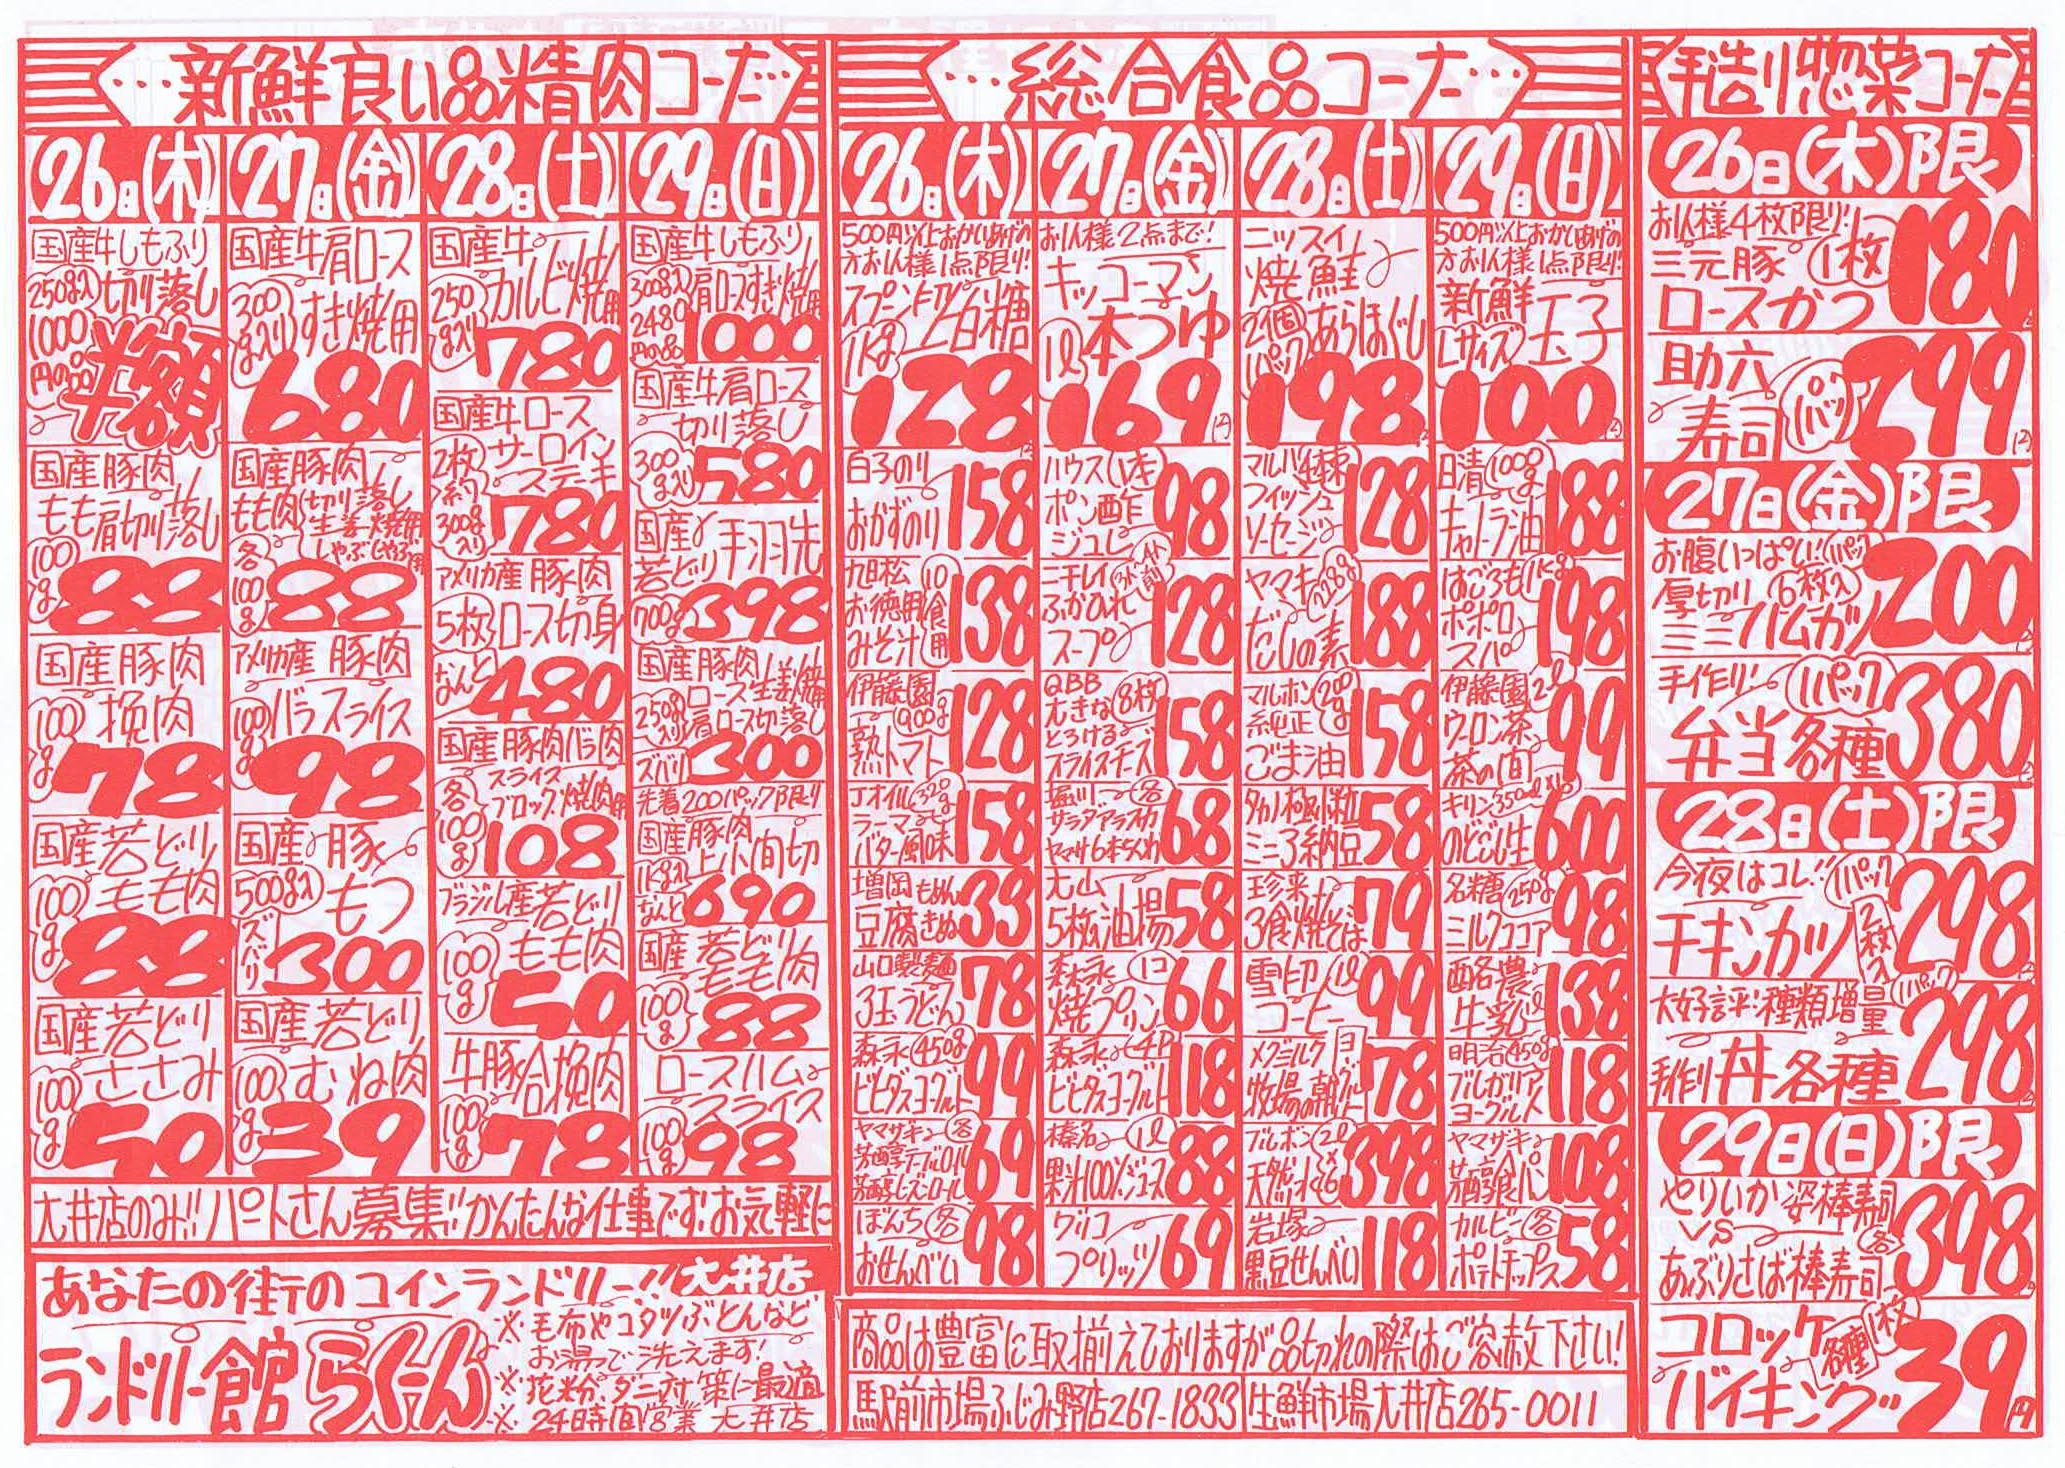 …新鮮良い品精肉コーナー…
26日(木)
国産牛しもふり
250g入り 切り落し
1000円の品
半額
国産豚肉
もも肩切り落し
100g 88
国産豚肉
100g 挽肉
78
国産若どり
100g もも肉
88
国産若どり
100g ささみ
50
27日(金)
国産牛肩ロース
300g入り すき焼用
680
国産豚肉
もも肉 切り落し
生姜焼用
しゃぶしゃぶ用
各100g 88
アメリカ産 豚肉
100g バラスライス
98
国産 豚
500g入 もつ
ズバリ 300
国産若どり
100g むね肉
39
28日(土)
国産牛
250g入り カルビ焼用
780
国産牛ロース
2枚 サーロイン
ステーキ
約300g入り 780
アメリカ産 豚肉
5枚 ロース切身
なんと 480
国産豚肉バラ肉
スライス
ブロック・焼肉用
各100g 108
ブラジル産若どり
100g もも肉
50
牛豚合挽肉
100g 78
29日(日)
国産牛しもふり
300g入 肩ロースすき焼用
2480円の品 1000
国産牛肩ロース
切り落し
300g入り 580
国産 手羽先
若どり
700g 398
国産豚肉
ロース生姜焼用
250g入り 肩ロース切り落し
ズバリ 300
先着200パック限り
国産豚肉
上小間切
1kg入 なんと 690
国産若どり
もも肉
100g 88
ロースハム
スライス
100g 98
大井店のみ!!パートさん募集!!かんたんな仕事です!お気軽に
あなたの街のコインランドリー!!大井店
ランドリー館 らくーん
※毛布やコタツぶとんなど
お湯で洗えます!
※花粉、ダニ対策に最適
※24時間営業 大井店
…総合食品コーナー…
26日(木)
500円以上お買いあげの
方お1人様1点限り!
スプーン印上白糖
1kg
128円
白子のり
おかずのり 158
お徳用 10食用
みそ汁 138
伊藤園 900g
熟トマト 128
Jオイル 320g
ラーマ
バター風味 158
増岡 もめん
豆腐 きぬ 33
山口製麺
3玉うどん 78
森永 450g
ビヒダスヨーグルト 99
ヤマザキ 各
芳醇テーブルロール
芳醇レーズンロール 69
ぼんち 各
おせんべい 98
27日(金)
お1人様2点まで!
キッコーマン
1ℓ 本つゆ
169円
ハウス 1本
ポン酢
ジュレ 98
ニチレイ 3〜4人前
ふかひれ
スープ 128
QBB 8枚
大きな
とろける
スライスチーズ 158
堀川 各
サラダアラスカ
ヤマサ6本ちくわ 68
大山
5枚油揚 58
森永 1コ
焼プリン 66
森永 4P
ビヒダスヨーグルト 118
榛名 1ℓ
果汁100%ジュース 88
グリコ
プリッツ 69
28日(土)
ニッスイ
焼鮭
2個1パック あらほぐし
198円
マルハ 4束
フィッシュ
ソーセージ 128
ヤマキ 228g
だしの素 188
マルホン 200g
純正
ごま油 158
タカノ極小粒
ミニ3納豆 58
珍来
3食焼そば 79
雪印 1ℓ
コーヒー 99
メグミルク
牧場の朝ヨーグルト 78
ブルボン 2ℓ×6
天然水 398
岩塚
黒豆せんべい 118
29日(日)
500円以上お買いあげの
方お1人様1点限り!
新鮮 玉子
Lサイズ
100円
日清 1000g
キャノーラ油 188
はごろも 1kg
ポポロ
スパ 198
伊藤園 2ℓ
ウーロン茶
茶の間 99
キリン 350ml×6
のどごし生 600
名糖 250g
ミルクココア 98
酪農
牛乳 1ℓ 138
明治 450g
ブルガリア
ヨーグルト 118
ヤマザキ
芳醇食パン 108
カルビー 各
ポテトチップス 58
商品は豊富に取揃えておりますが品切れの際はご容赦下さい!
駅前市場ふじみ野店267-1833 生鮮市場大井店265-0011
手造り惣菜コーナー
26日(木)限
お1人様4枚限り!
三元豚 1枚
ロースかつ 180円
助六
寿司 1パック 299円
27日(金)限
お腹いっぱい!1パック
厚切り 6枚入
ミミハムカツ 200円
手作り! 1パック
弁当各種 380円
28日(土)限
今夜はコレ!! 1パック
チキンカツ 2枚入 298円
大好評!種類増量 1パック
手作り丼各種 298円
29日(日)限
やりいか姿棒寿司
VS 各
あぶりさば棒寿司 398円
コロッケ 各種 1枚
バイキング 39円